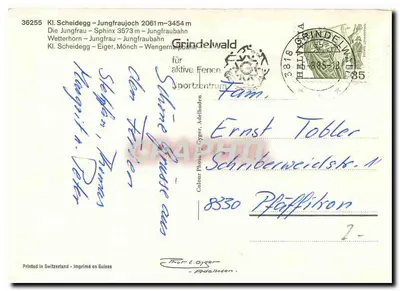 36255 Kl. Scheidegg - Jungfraujoch 2061 m - 3454 m
Die Jungfrau - Sphinx 3573 m - Jungfraubahn
Wetterhorn - Jungfrau - Jungfraubahn
Kl. Scheidegg - Eiger, Mönch - Wengernalpbahn
Grindelwald
für
aktive Ferien
Sportzentrum
3818 GRINDELWALD
HELVETIA
35
Schöne Grüsse aus
den Ferien
Stephan, Thomas
Margrit u. Peter
Colour Photo by Gyger, Adelboden
Fam.
Ernst Tobler
Schriberweidstr. 11
8330 Pfäffikon
2.-
Printed in Switzerland - Imprimé en Suisse
Gyger
Adelboden